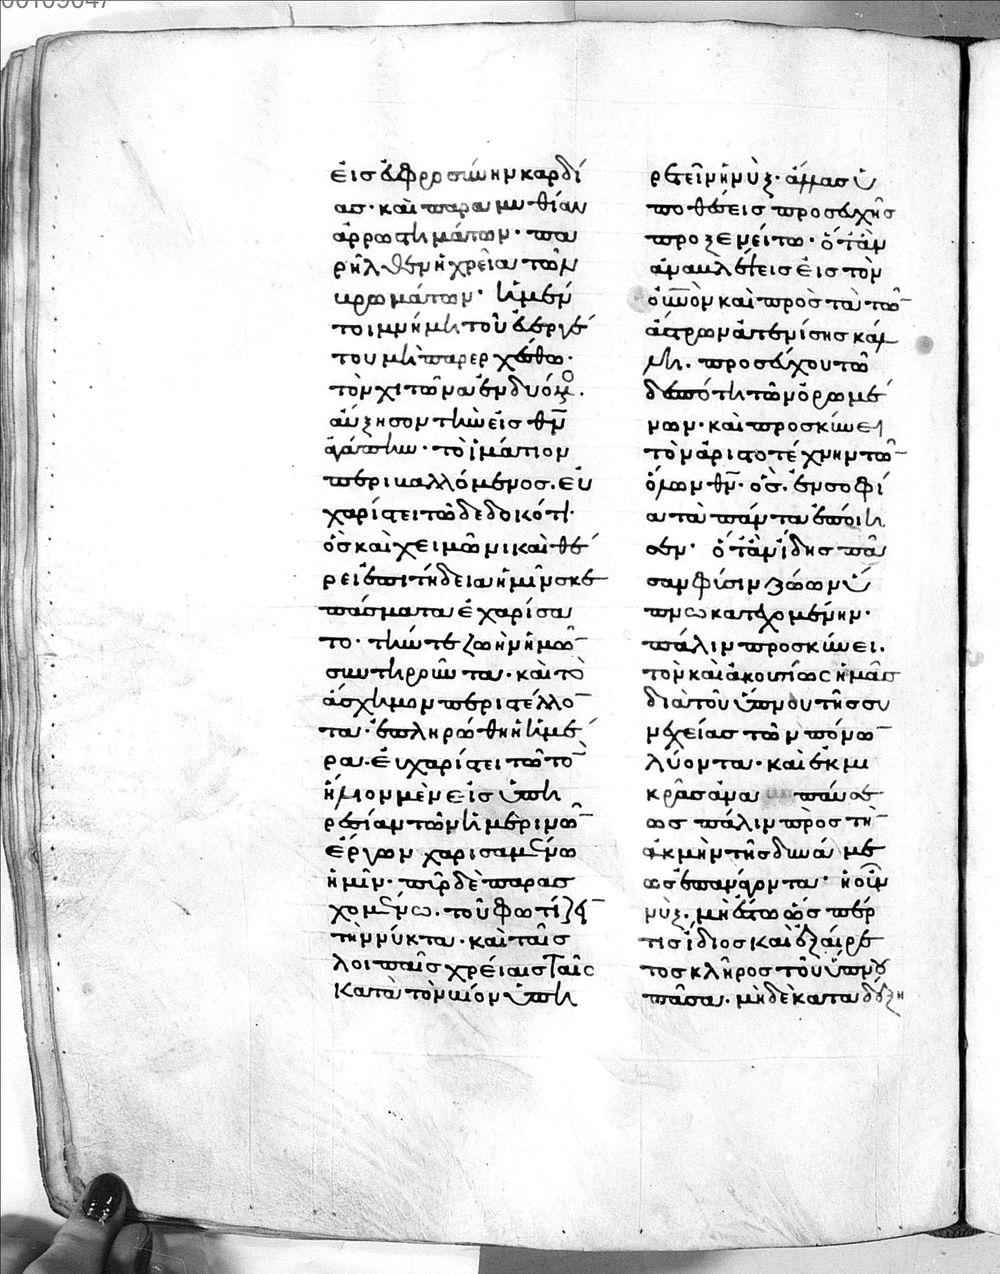 εἰς ἐυφροσύνην καρδί
ας· καὶ παραμυθίαν
ἀρρωστημάτων· πα
ρῆλθεν ἡ χρεία τῶν
βρωμάτων· ἡ μὲν
τοι μνήμη τοῦ ἐυεργέ
του μὴ παρερχέσθω·
τὸν χιτῶνα ἐνδυόμενος·
ἀύξησον τὴν εἰς θν̅
ἀγάπην· τὸ ἱμάτιον
περιβαλλόμενος· ἐυ
χαρίστει τῶ δεδωκότι·
ὃς καὶ χειμῶνι καὶ θέ
ρει ἐπιτήδεια ἡμῖν σκε
πάσματα ἐχαρίσα
το· τήν τε ζωὴν ἡμῶν
συντηροῦντα· καὶ τὸ
ἄσχημον περιστέλλον
τα· ἐπληρώθη ἡ ἡμέ
ρα· ἐυχαρίστει τῶ τὸν
ἥλιον μὲν εἰς ὑπη
ρεσίαν τῶν ἡμερινῶν
ἔργων χαρισαμένω
ἡμῖν· πῦρ δὲ παρασ
χομένω· τοῦ φωτίζειν
τὴν νύκτα· καὶ ταῖς
λοιπαῖς χρείαις ταῖς
κατὰ τὸν βίον ὑπη
ρετεῖν ἡ νὺξ· ἄλλας ὑ
ποθέσεις προσευχῆς
προξενείτω· ὅταν
ἀναβλέπεις εἰς τὸν
οὐνὸν καὶ πρὸς τὰ τῶν
ἄστρων ἀτενίσης κάλ
λη· προσεύχου τῶ
δεσπότη τῶν ὁρωμέ
νων· καὶ προσκύνει
τὸν ἀριστοτέχνην τῶν
ὅλων θν̅· ὃς ἐν σοφί
α τὰ πάντα ἐποίη
σεν· ὅταν ἴδης πᾶ
σαν φύσιν ζώων ὑ
πνω κατεχομένην·
πάλιν προσκύνει·
τὸν καὶ ἀκουσίως ἡμᾶς
διὰ τοῦ ὕπνου τῆς συ
νεχείας τῶν πόνων
λύοντα· καὶ ἐκ μι
κρᾶς ἀναπαύσε
ως πάλιν πρὸς τὴν
ἀκμὴν τῆς δυνάμε
ως ἐπανάγοντα· ἡ οὖν
νὺξ· μὴ ἔστω ὥσπερ
τις ἴδιος καὶ ἐξαίρε
τος κλῆρος τοῦ ὕπνου
πᾶσα· μηδὲ καταδέξη